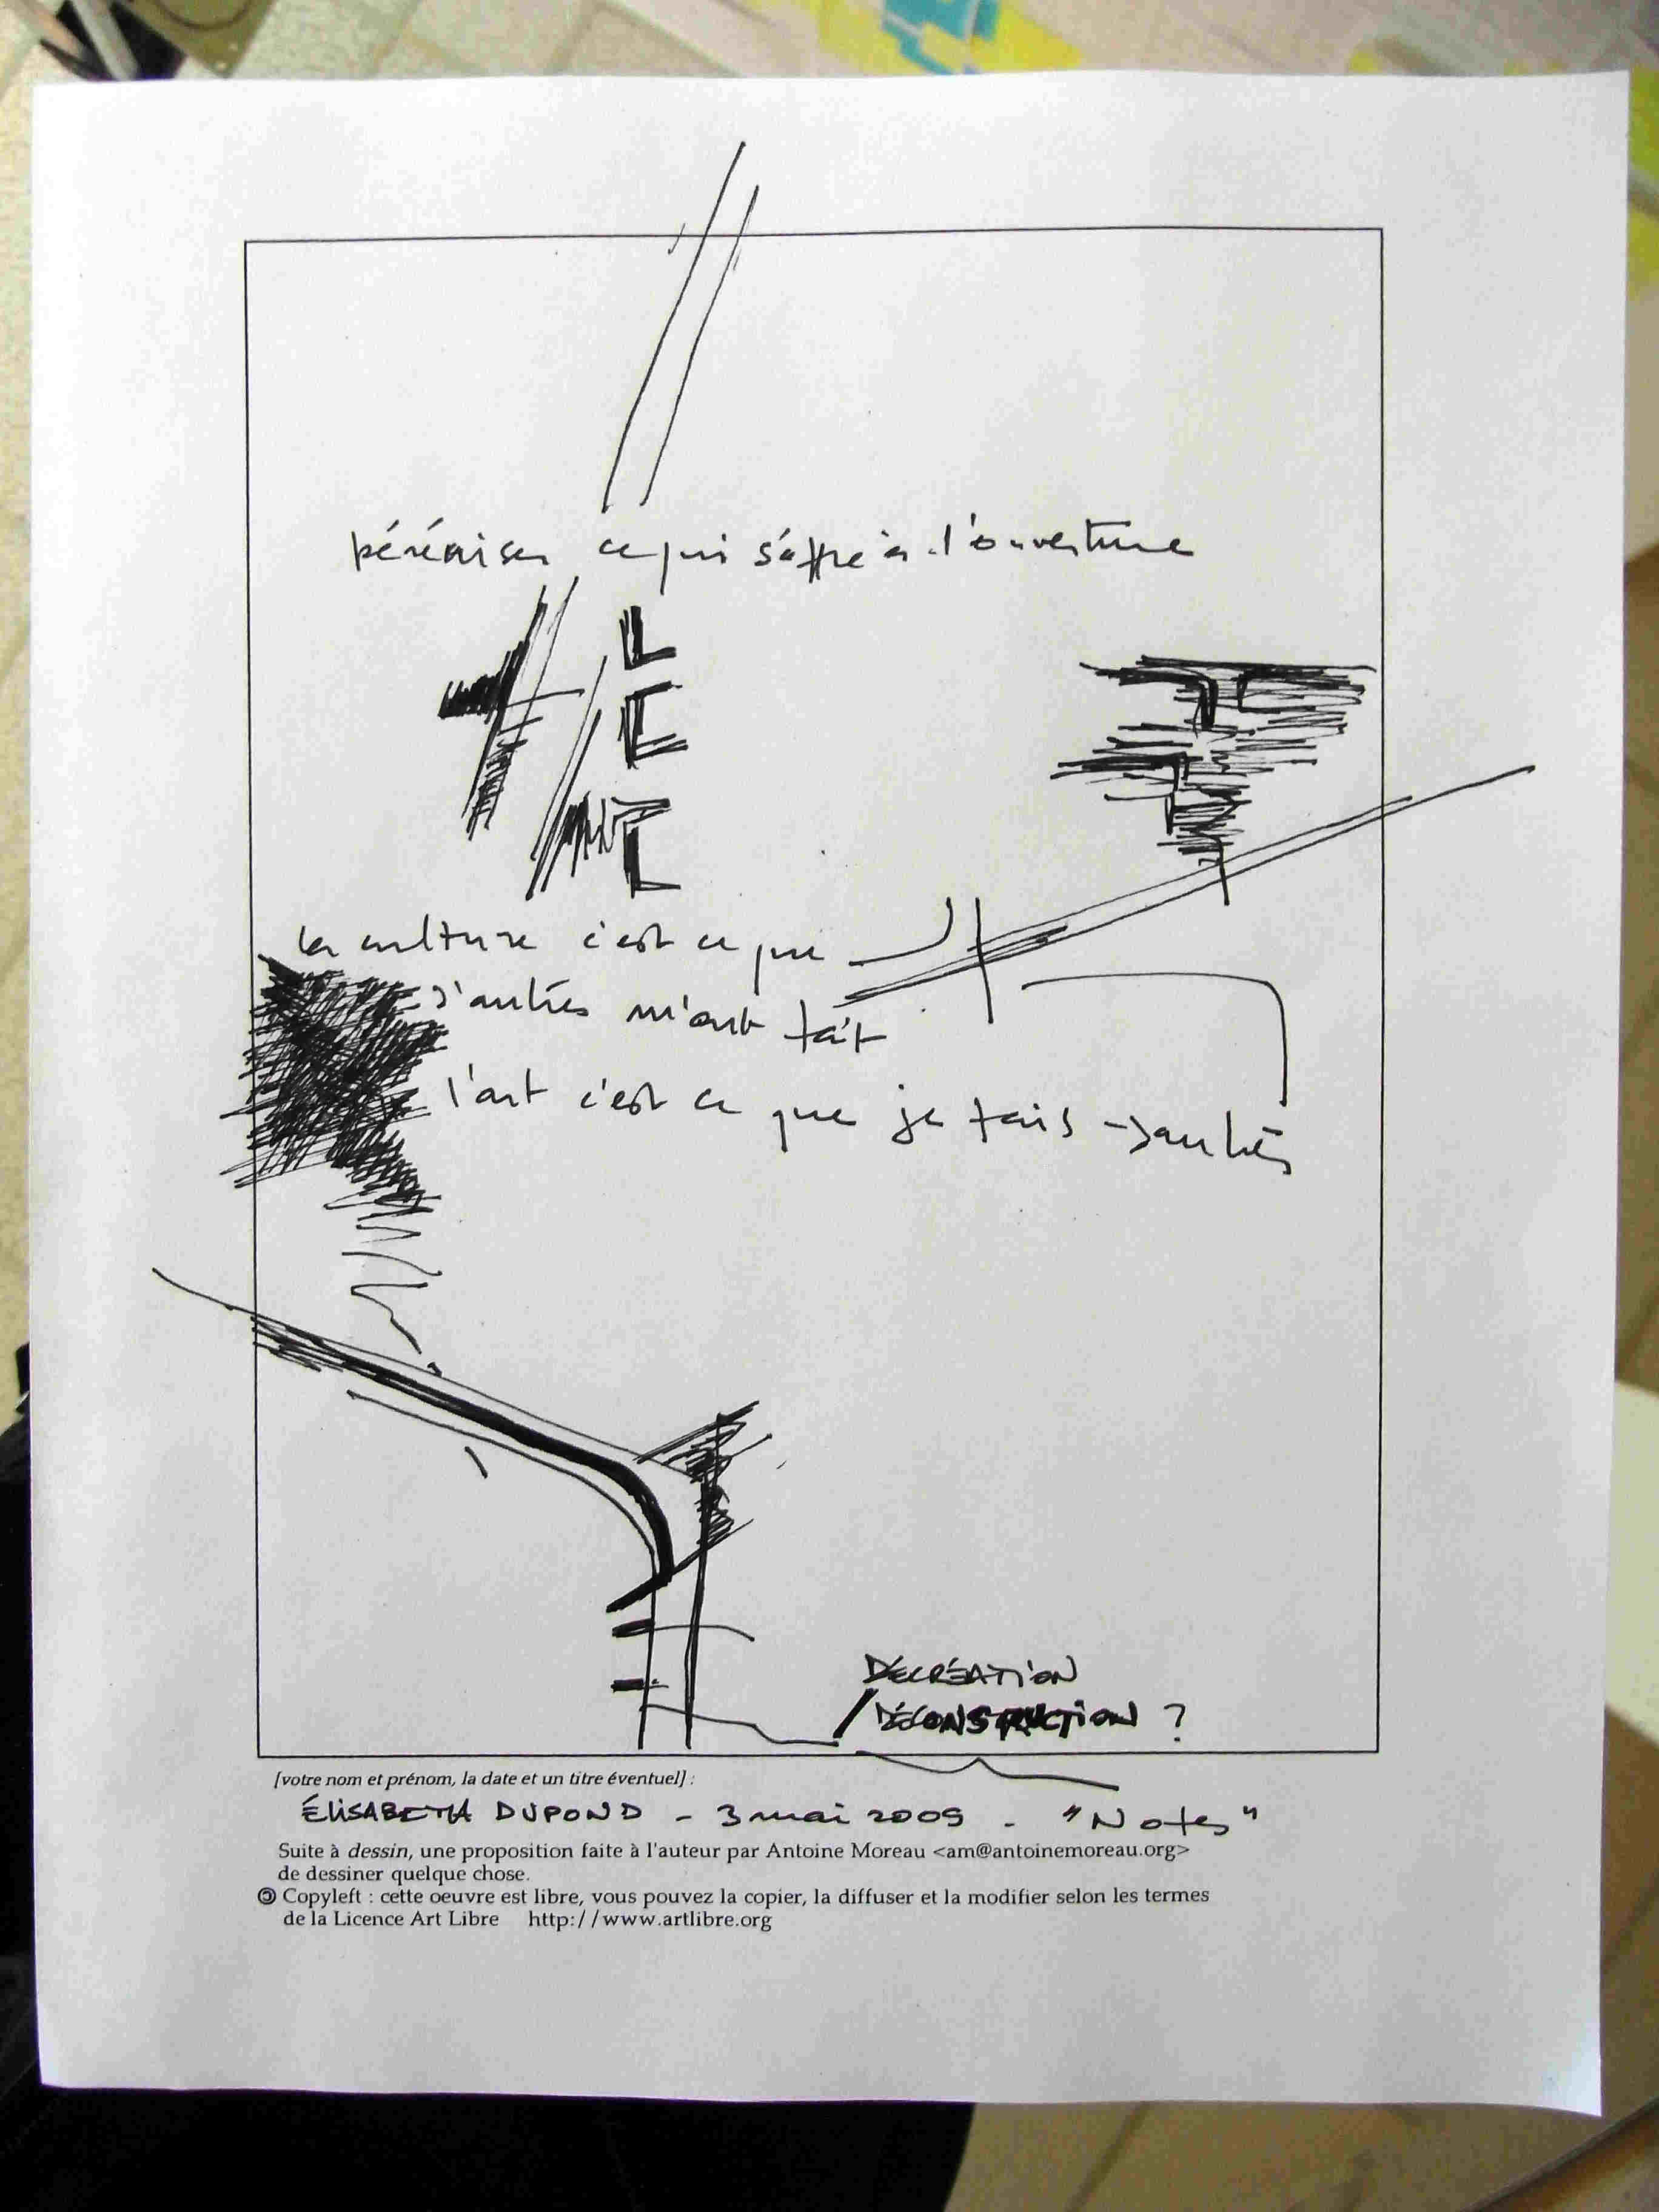 péréniser ce qui s'offre à l'ouverture
la culture c'est ce que
d'autres m'ont fait
l'art c'est ce que je fais → autres
DÉCRÉATION
/DÉCONSTRUCTION ?
[votre nom et prénom, la date et un titre éventuel] :
ÉLISABETH DUPOND - 3 mai 2009 - "Notes"
Suite à dessin, une proposition faite à l'auteur par Antoine Moreau <am@antoinemoreau.org>
de dessiner quelque chose.
Copyleft : cette oeuvre est libre, vous pouvez la copier, la diffuser et la modifier selon les termes
de la Licence Art Libre http://www.artlibre.org